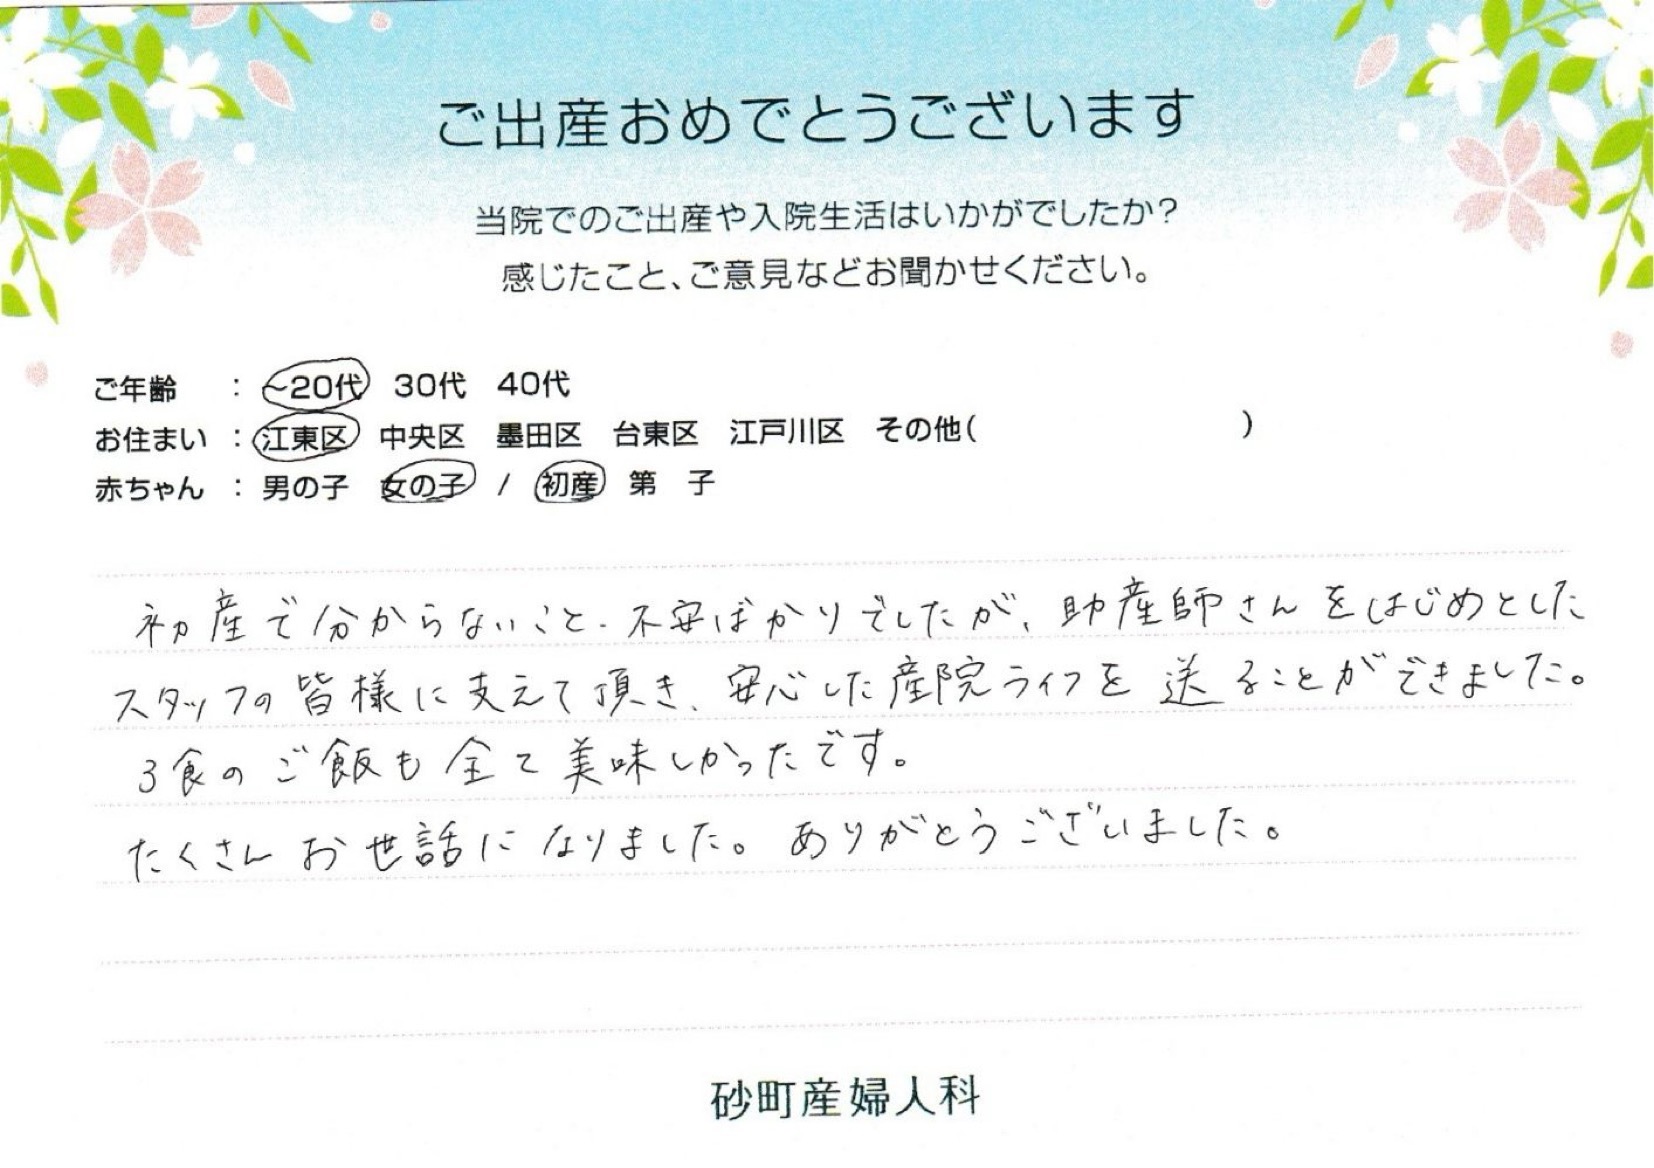 ご出産おめでとうございます
当院でのご出産や入院生活はいかがでしたか？
感じたこと、ご意見などお聞かせください。
ご年齢 ： ～20代 30代 40代
お住まい ： 江東区 中央区 墨田区 台東区 江戸川区 その他（ ）
赤ちゃん ： 男の子 女の子 / 初産 第 子
初産で分からないこと・不安ばかりでしたが、助産師さんをはじめとした
スタッフの皆様に支えて頂き、安心した産院ライフを送ることができました。
3食のご飯も全て美味しかったです。
たくさんお世話になりました。ありがとうございました。
砂町産婦人科